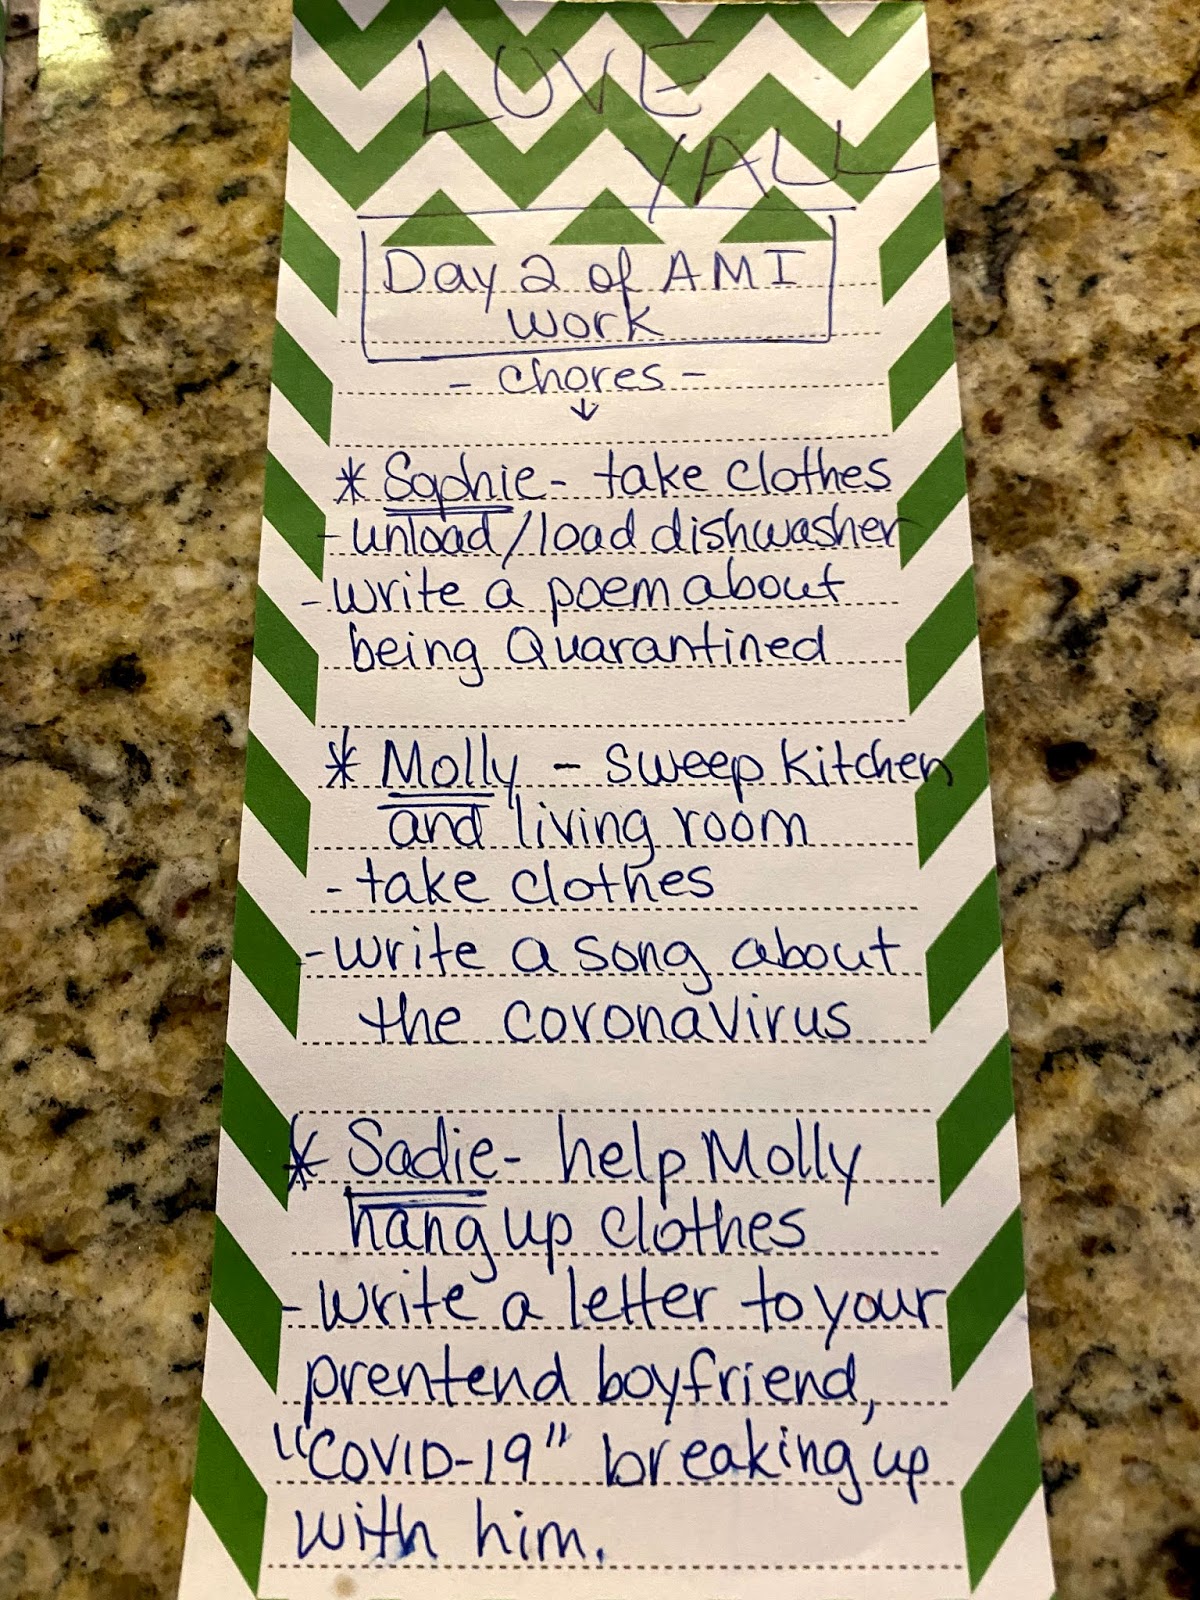 LOVE
YALL
Day 2 of AMI
work
- chores -
↓
* Sophie - take clothes
- unload/load dishwasher
- write a poem about
being Quarantined
* Molly - sweep kitchen
and living room
- take clothes
- write a song about
the coronavirus
* Sadie - help Molly
hang up clothes
- write a letter to your
prentend boyfriend,
"COVID-19" breaking up
with him.